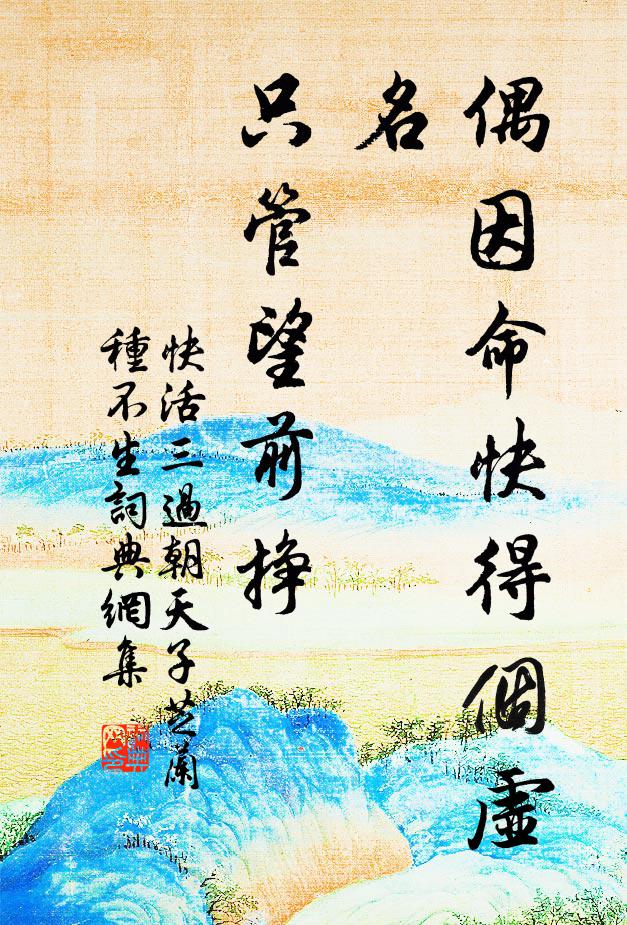 偶因命快得個虛
名
只管望前掙
快活三過朝天子芝蘭
種不生詞典網集